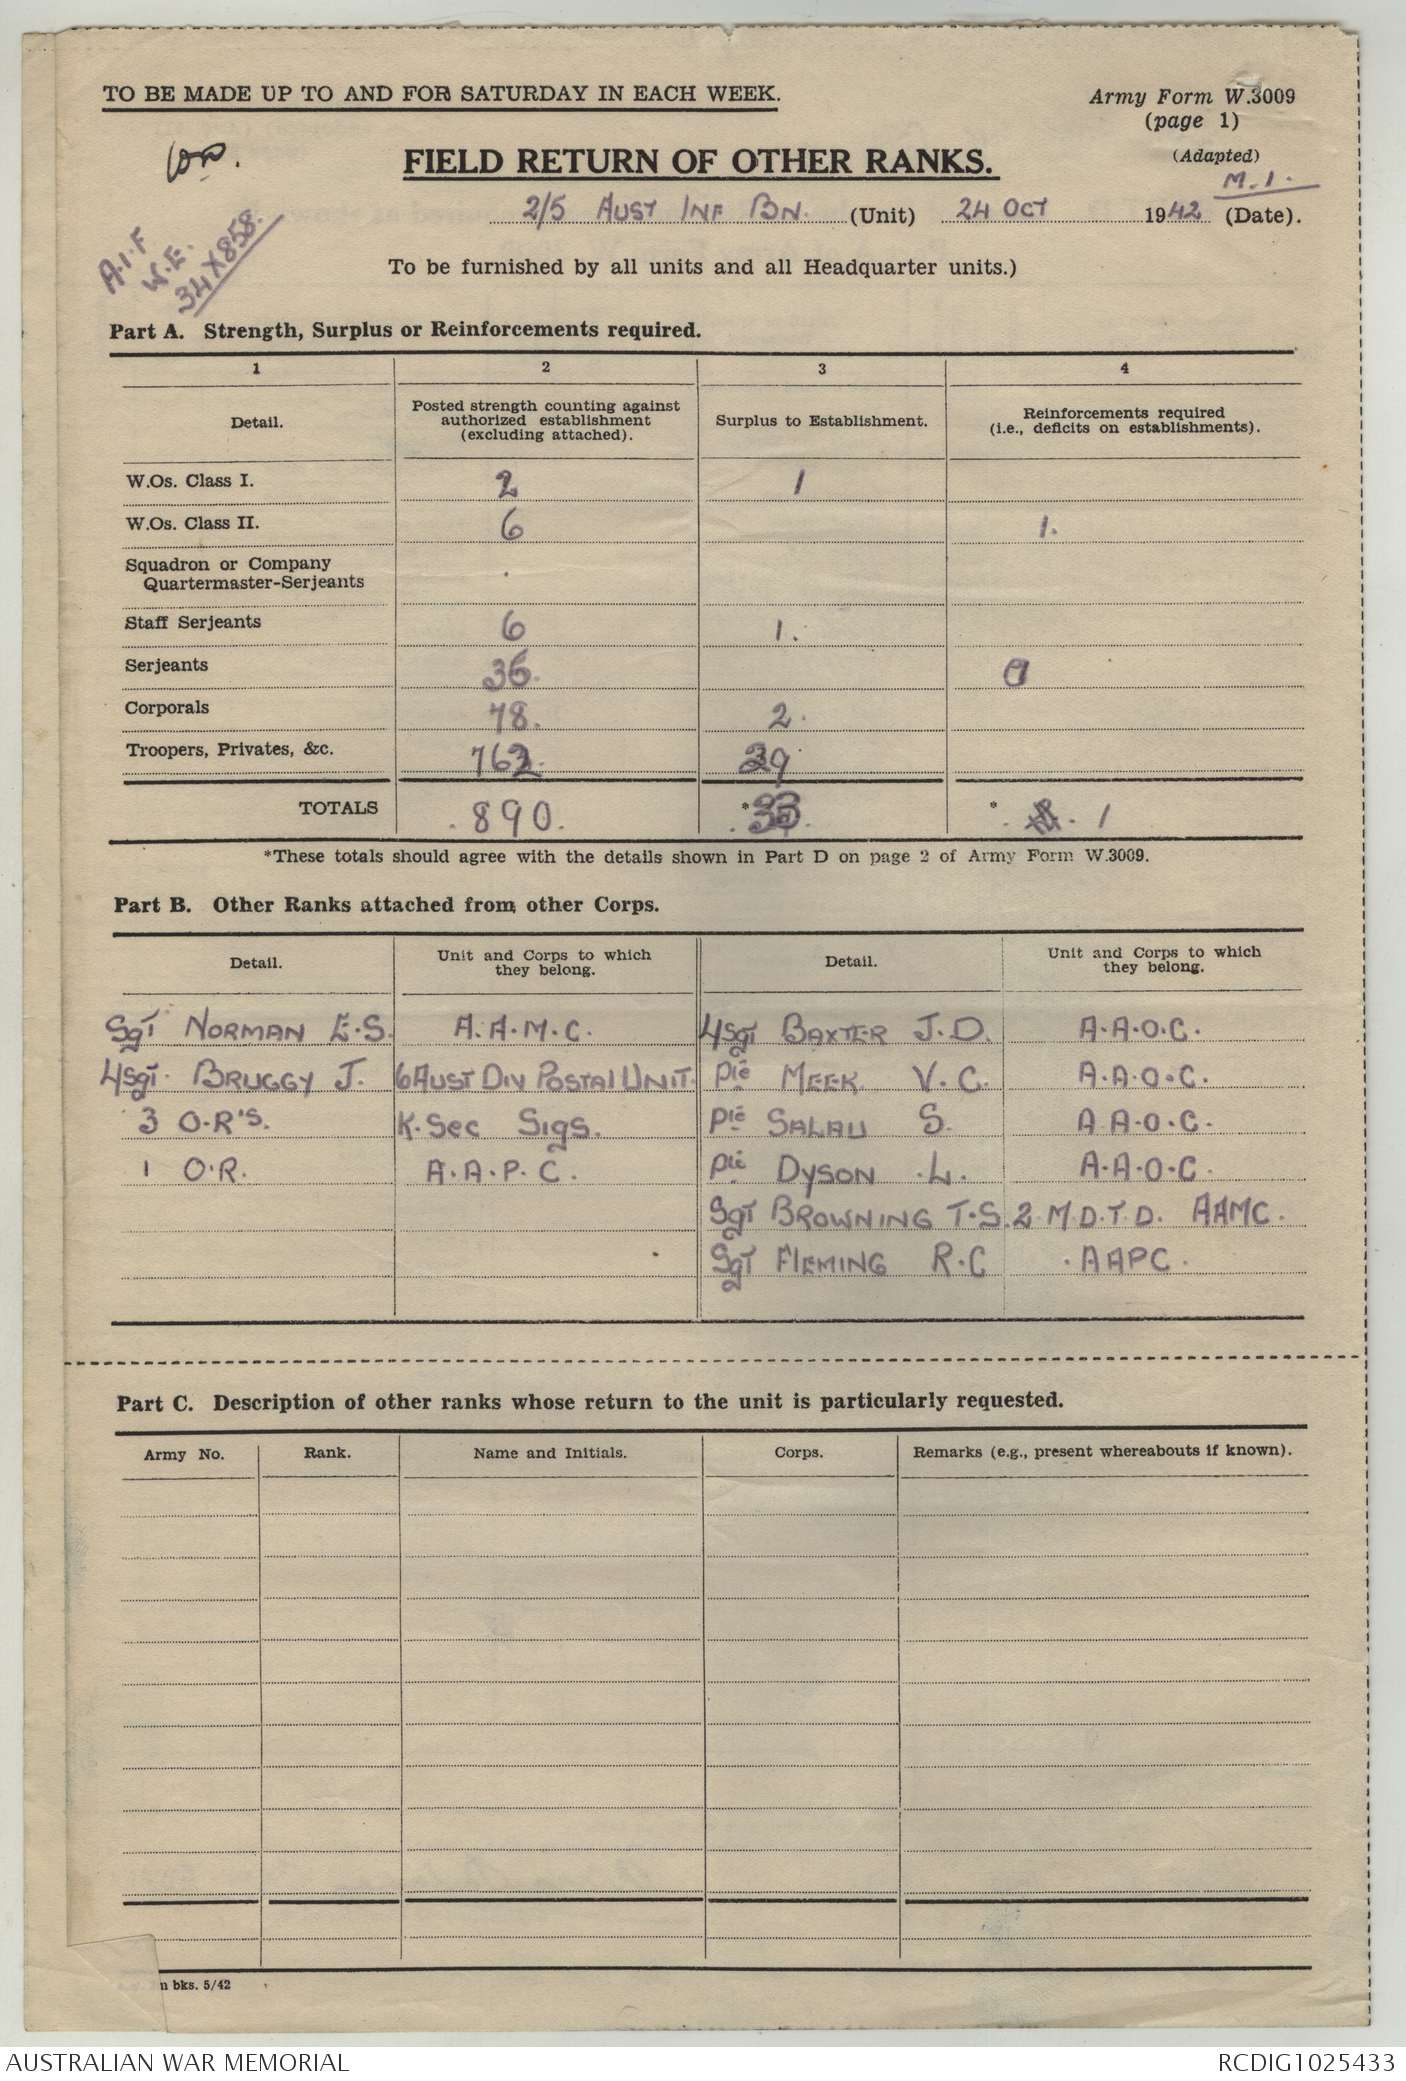 TO BE MADE UP TO AND FOR SATURDAY IN EACH WEEK.
Army Form W.3009
(page 1)
(Adapted)
M.I.
FIELD RETURN OF OTHER RANKS.
2/5 AUST INF BN. (Unit) 24 OCT 1942 (Date).
A.I.F
W.E.
34X858.
To be furnished by all units and all Headquarter units.)
Part A. Strength, Surplus or Reinforcements required.
1 2 3 4
Detail. Posted strength counting against authorized establishment (excluding attached). Surplus to Establishment. Reinforcements required (i.e., deficits on establishments).
W.Os. Class I. 2 1
W.Os. Class II. 6 1.
Squadron or Company
Quartermaster-Serjeants
Staff Serjeants 6 1.
Serjeants 36.
Corporals 78. 2.
Troopers, Privates, &c. 762. 29
TOTALS .890. *33. * 1
*These totals should agree with the details shown in Part D on page 2 of Army Form W.3009.
Part B. Other Ranks attached from other Corps.
Detail. Unit and Corps to which they belong. Detail. Unit and Corps to which they belong.
Sgt NORMAN E.S. A.A.M.C. L/Sgt BAXTER J.D. A.A.O.C.
L/Sgt. BRUGGY J. 6 AUST DIV POSTAL UNIT. Pte MEEK V.C. A.A.O.C.
3 O.R'S. K.Sec Sigs. Pte SALAU S. A.A.O.C.
1 O.R. A.A.P.C. Pte DYSON L. A.A.O.C.
Sgt BROWNING T.S. 2.M.D.T.D. AAMC.
Sgt FLEMING R.C AAPC.
Part C. Description of other ranks whose return to the unit is particularly requested.
Army No. Rank. Name and Initials. Corps. Remarks (e.g., present whereabouts if known).
bks. 5/42
AUSTRALIAN WAR MEMORIAL RCDIG1025433